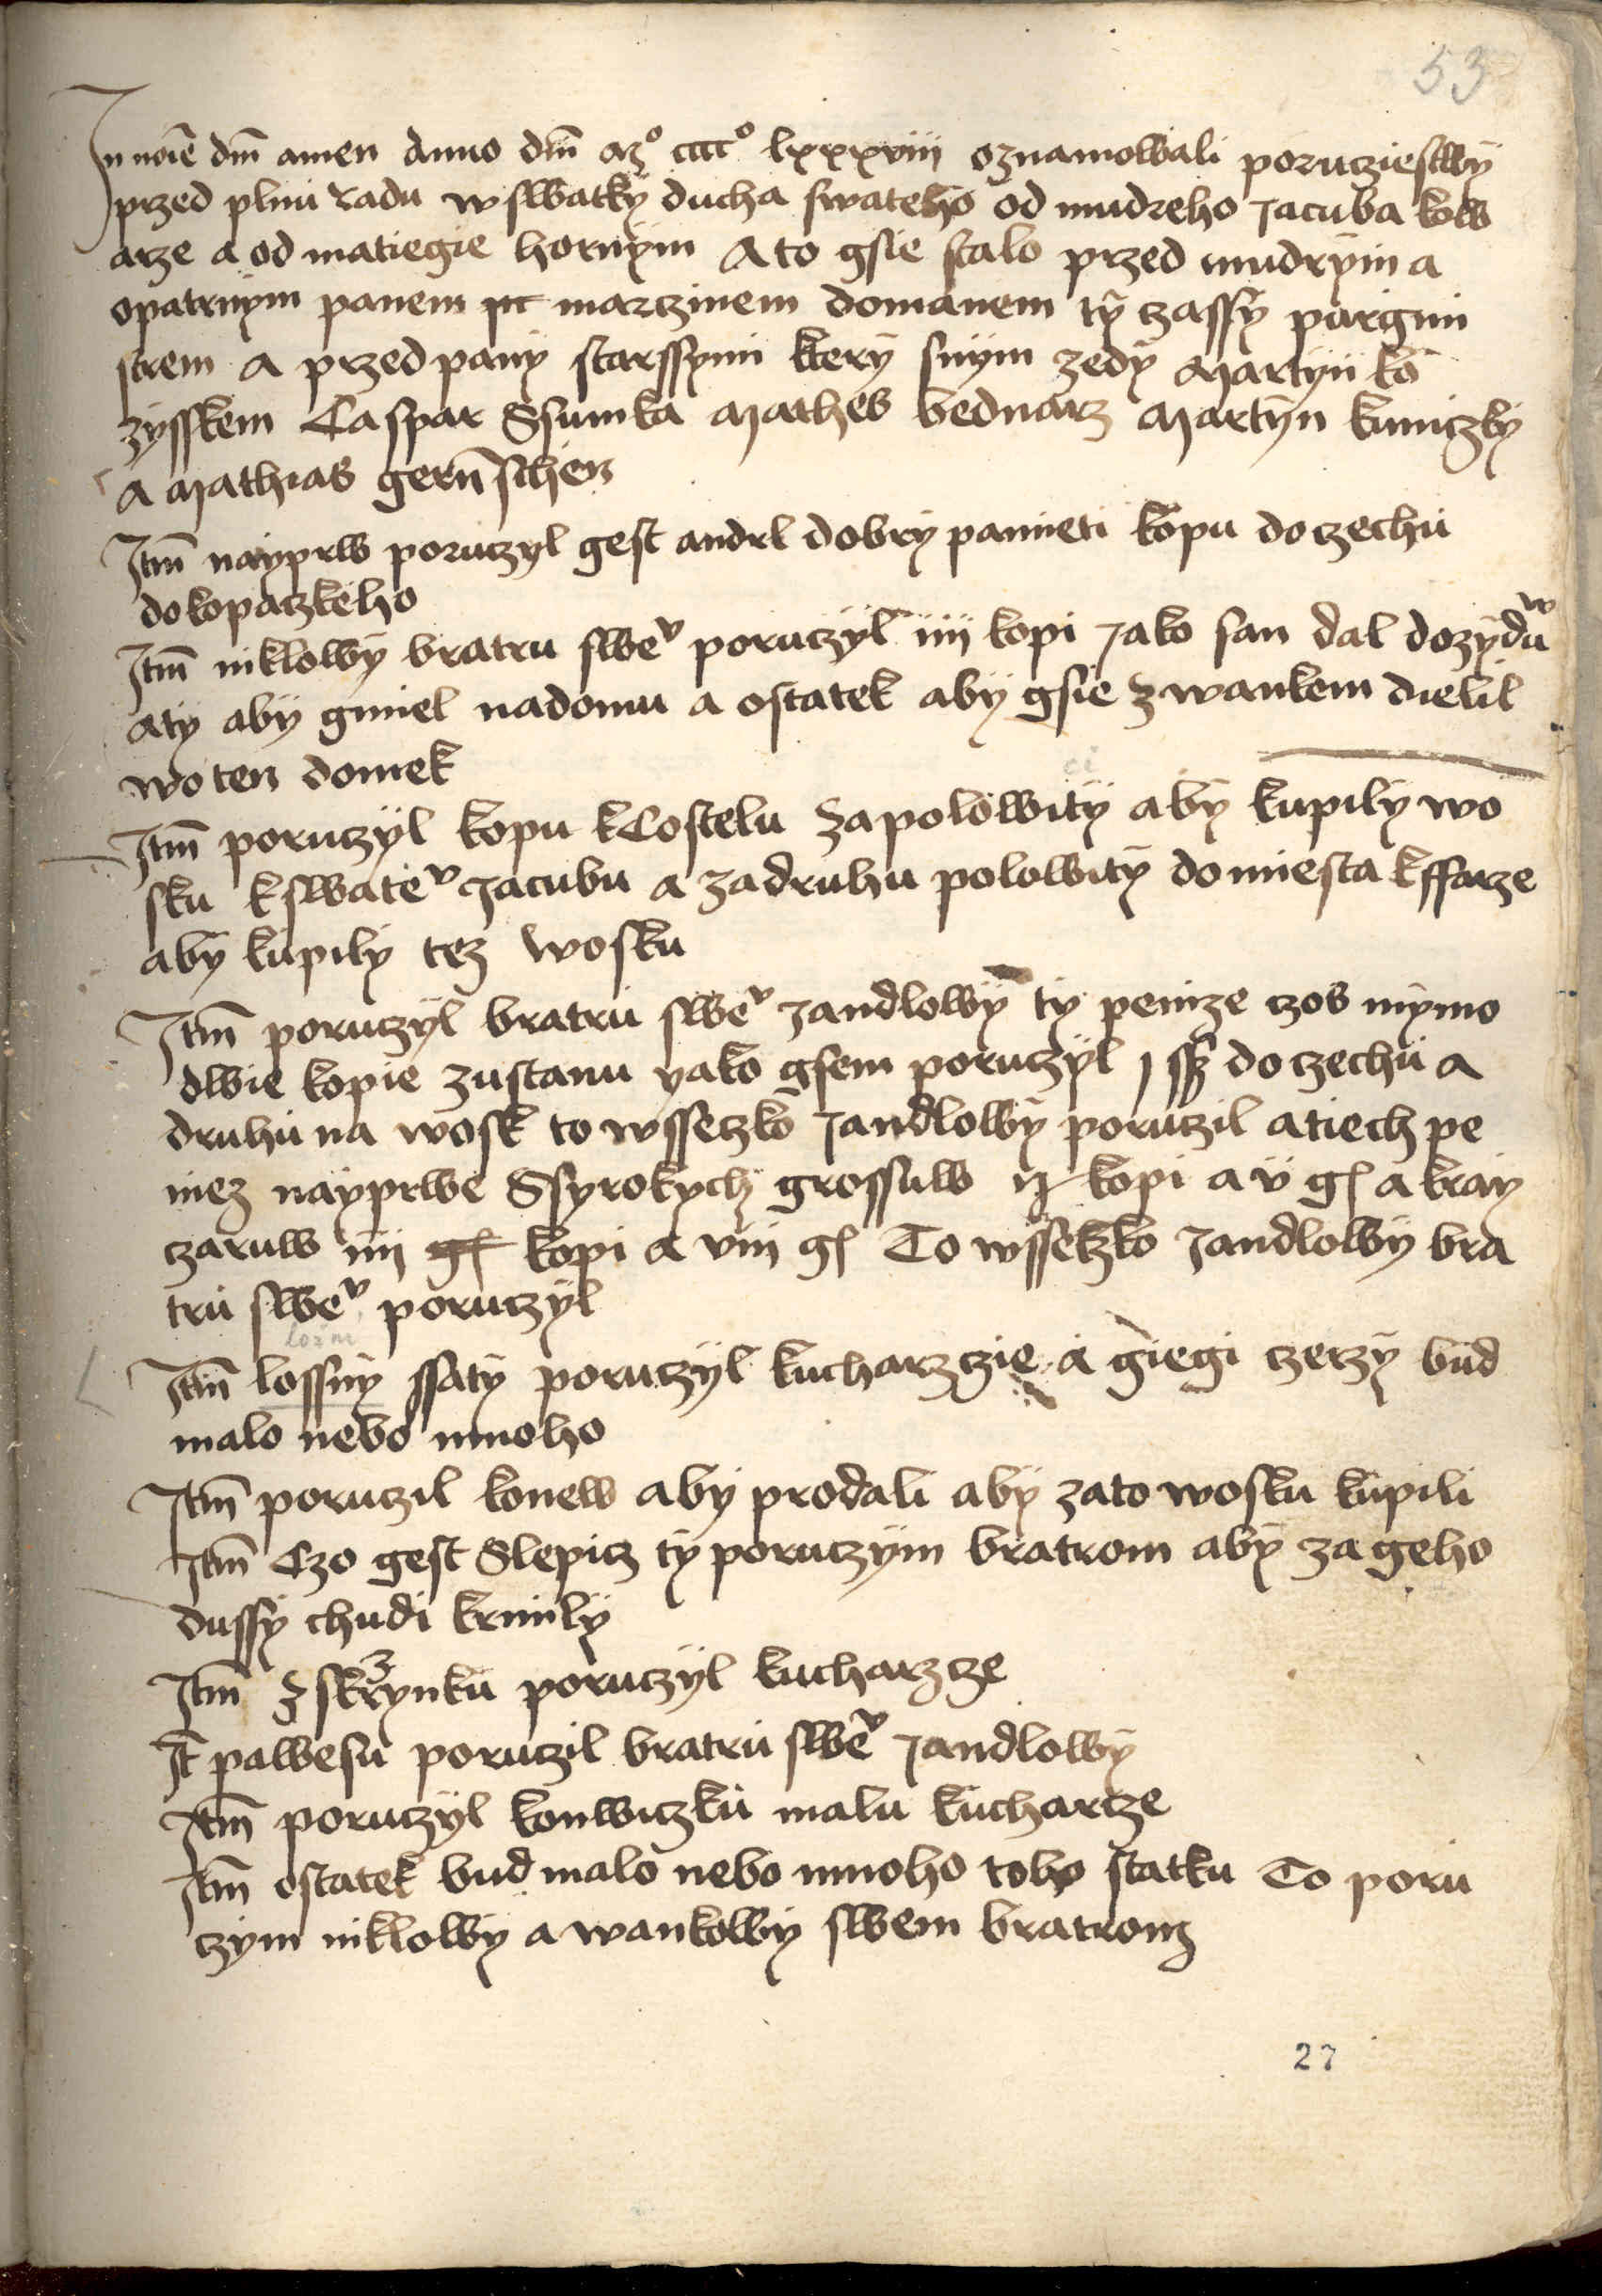 53
In noīe dm̄ amen Anno dm̄ mº ccccº lxxxviii oznamowali porucziestwÿ
przed plnu radu w swatkÿ ducha swateho od mudreho Jacuba kow
arze a od matiegie hornÿm A to gsie stalo przed mudrÿm a
opatrnÿm panem marczinem domanem tÿ czassÿ purgmi
strem a przed panÿ starssÿmi kterÿ snÿm zedÿ Martÿn ko
zÿsskem Caspar Ssumka Mathes bednarz Martÿn kuniczkÿ
a Mathias gern̄schen
Itm̄ naÿprw poruczÿl gest andrl dobrÿ pamieti kopu do czechu
do kopaczkeho
Itm̄ niklowÿ bratru sweᵛ poruczÿl iiij kopi Jako san dal dozÿduw
atÿ abÿ gmiel nadomu a ostatek abÿ gsie z wankem dielil
wo ten domek
ci
Itm̄ poruczÿl kopu kCostelu zapolowitÿ abÿ kupilÿ wo
sku kswateᵛ Jacubu a zadruhu polowitÿ do miesta kffarze
abÿ kupilÿ tez wosku
Itm̄ poruczÿl bratru sweᵛ Jandlowÿ tÿ penize czos mÿmo
dwie kopie zustanu yako gsem poruczÿl j ss do czechu a
druhu na wosk to wsseczko Jandlowÿ poruczil atiech pe
niez naÿprwe Ssyrokÿch grossuw kopi a v gſ a kraÿ
czaruw iiij gſ kopi a viii gſ To wsseczko Jandlowÿ bra
tru sweᵛ poruczÿl
lozni
Itm̄ lossnÿ ssatÿ poruczÿl kucharzczie a giegi czerzÿ bud
malo nebo mnoho
Itm̄ poruczil konew abÿ prodali abÿ zato wosku kupili
Itm̄ Czo gest Slepicz tÿ poruczÿm bratrom abÿ za geho
dussÿ chudi krmilÿ
Itm̄ z skrzynku poruczÿl kucharzcze
It̄ pawesu poruczil bratru sweᵛ Jandlowÿ
Itm̄ poruczÿl konwiczku malu kucharcze
Itm̄ ostatek bud malo nebo mnoho toho statku To poru
czym niklowÿ a wankowÿ swem bratrom
27